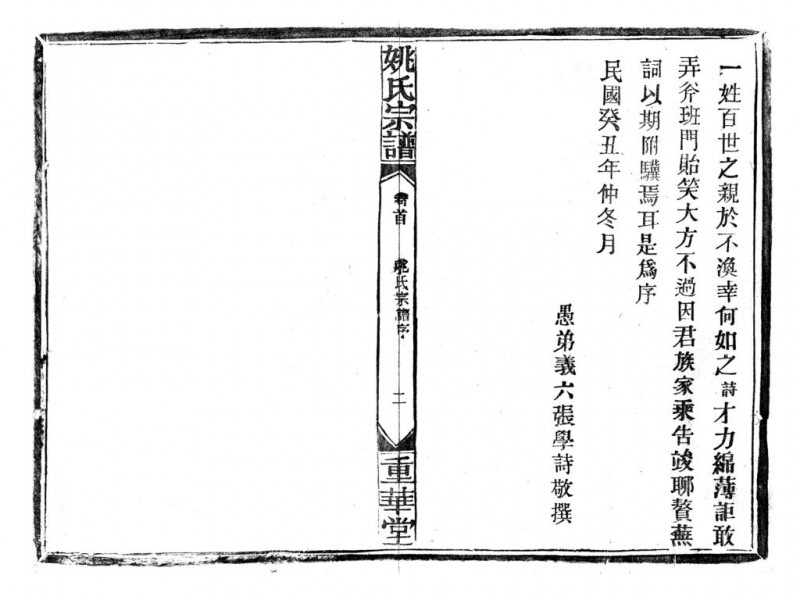 一姓百世之親於不渙幸何如之詩才力綿薄詎敢
弄斧班門貽笑大方不過因君族家乘告竣聊贅蕪
詞以期附驥焉耳是爲序
民國癸丑年仲冬月
愚弟義六張學詩敬撰
姚氏宗譜
卷首
姚氏宗譜序
二
重華堂